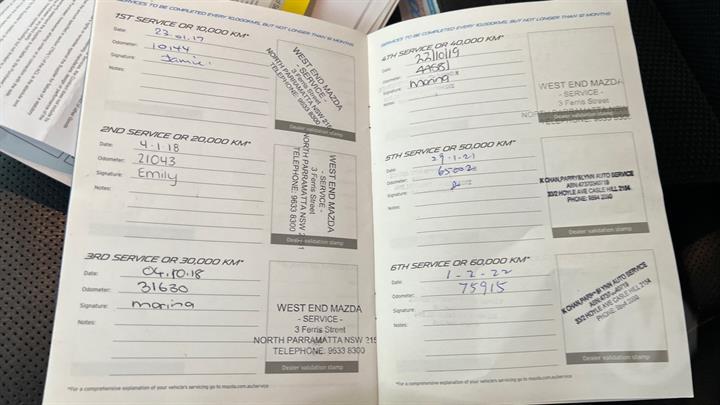 SERVICES TO BE COMPLETED EVERY 10,000KMS, BUT NOT LONGER THAN 12 MONTHS
1ST SERVICE OR 10,000 KM*
Date: 23.01.17
Odometer: 10144
Signature: Jamie
Notes:
WEST END MAZDA
- SERVICE -
3 Ferris Street
NORTH PARRAMATTA NSW 215
TELEPHONE: 9633 8300
Dealer validation stamp
2ND SERVICE OR 20,000 KM*
Date: 4.1.18
Odometer: 21043
Signature: Emily
Notes:
WEST END MAZDA
- SERVICE -
3 Ferris Street
NORTH PARRAMATTA NSW
TELEPHONE: 9633 8300
Dealer validation stamp
3RD SERVICE OR 30,000 KM*
Date: 04.10.18
Odometer: 31630
Signature: marina
Notes:
WEST END MAZDA
- SERVICE -
3 Ferris Street
NORTH PARRAMATTA NSW 215
TELEPHONE: 9633 8300
Dealer validation stamp
*For a comprehensive explanation of your vehicle's servicing go to mazda.com.au/service
SERVICES TO BE COMPLETED EVERY 10,000KMS, BUT NOT LONGER THAN 12 MONTHS
4TH SERVICE OR 40,000 KM*
Date: 22/10/19
Odometer:
Signature: marina
Notes:
WEST END MAZDA
- SERVICE -
3 Ferris Street
Dealer validation stamp
5TH SERVICE OR 50,000 KM*
Date: 29-1-21
Odometer: 65002
Signature:
Notes:
K CHAN,PARRYBLYNN AUTO SERVICE
33/2 HOYLE AVE CASLE HILL 2154
PHONE: 9894 2990
Dealer validation stamp
6TH SERVICE OR 60,000 KM*
Date: 1-2-22
Odometer: 75915
Signature:
Notes:
K CHAN,PARRYBLYNN AUTO SERVICE
33/2 HOYLE AVE CASLE HILL 2154
Dealer validation stamp
*For a comprehensive explanation of your vehicle's servicing go to mazda.com.au/service